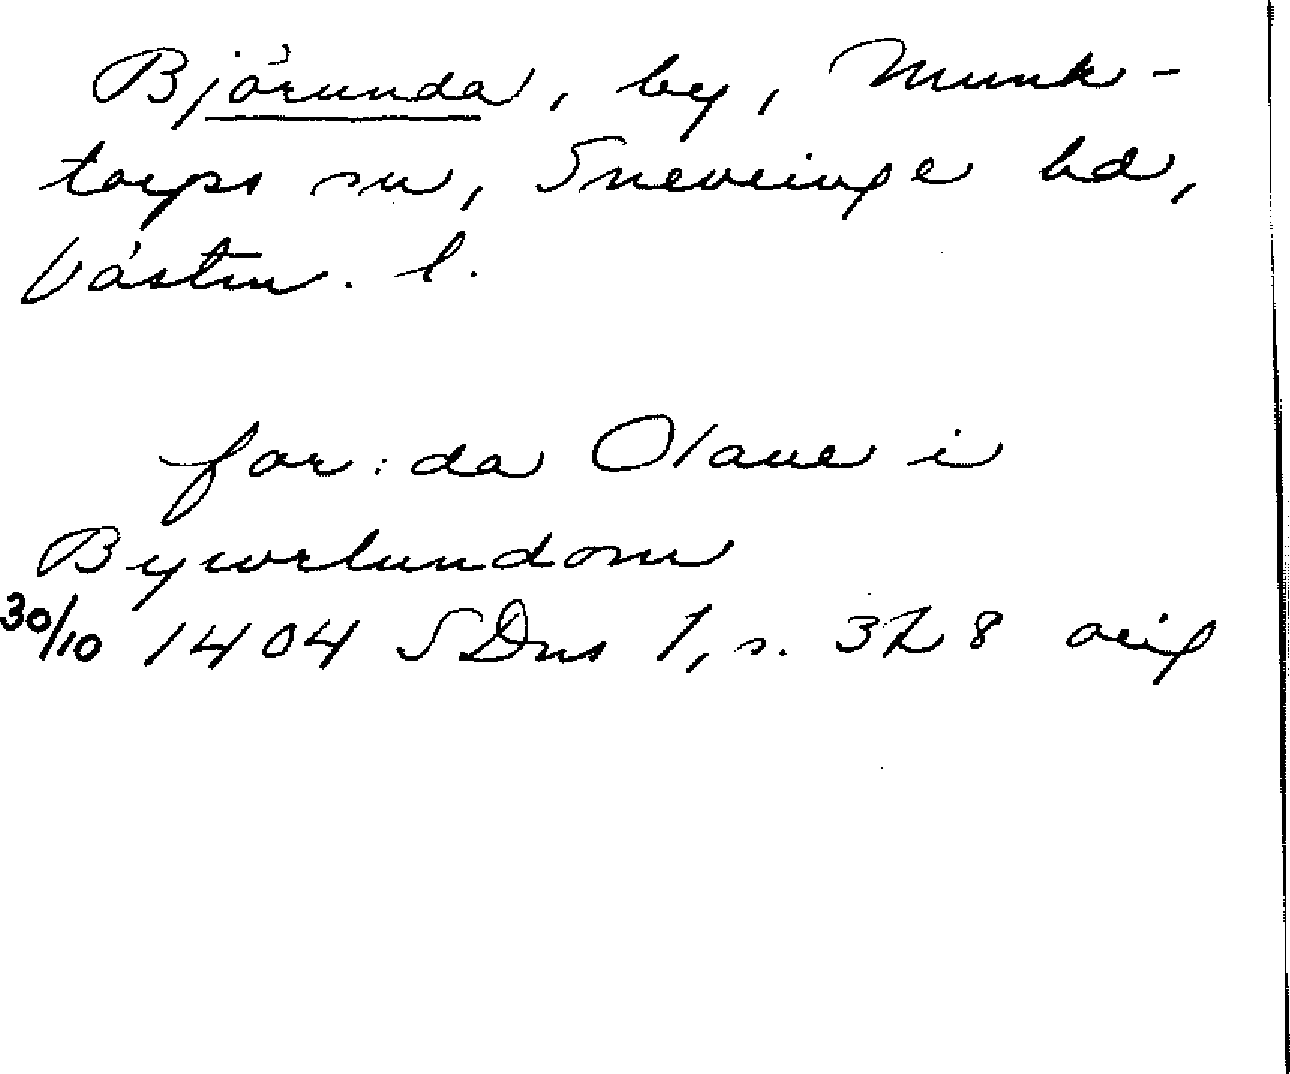 Björunda, by, Munk-
torps sn, Snevringe hd,
Västm. l.
for: da Olaue i
Byworlundom
30/10 1404 SDns 1, s. 328 orig